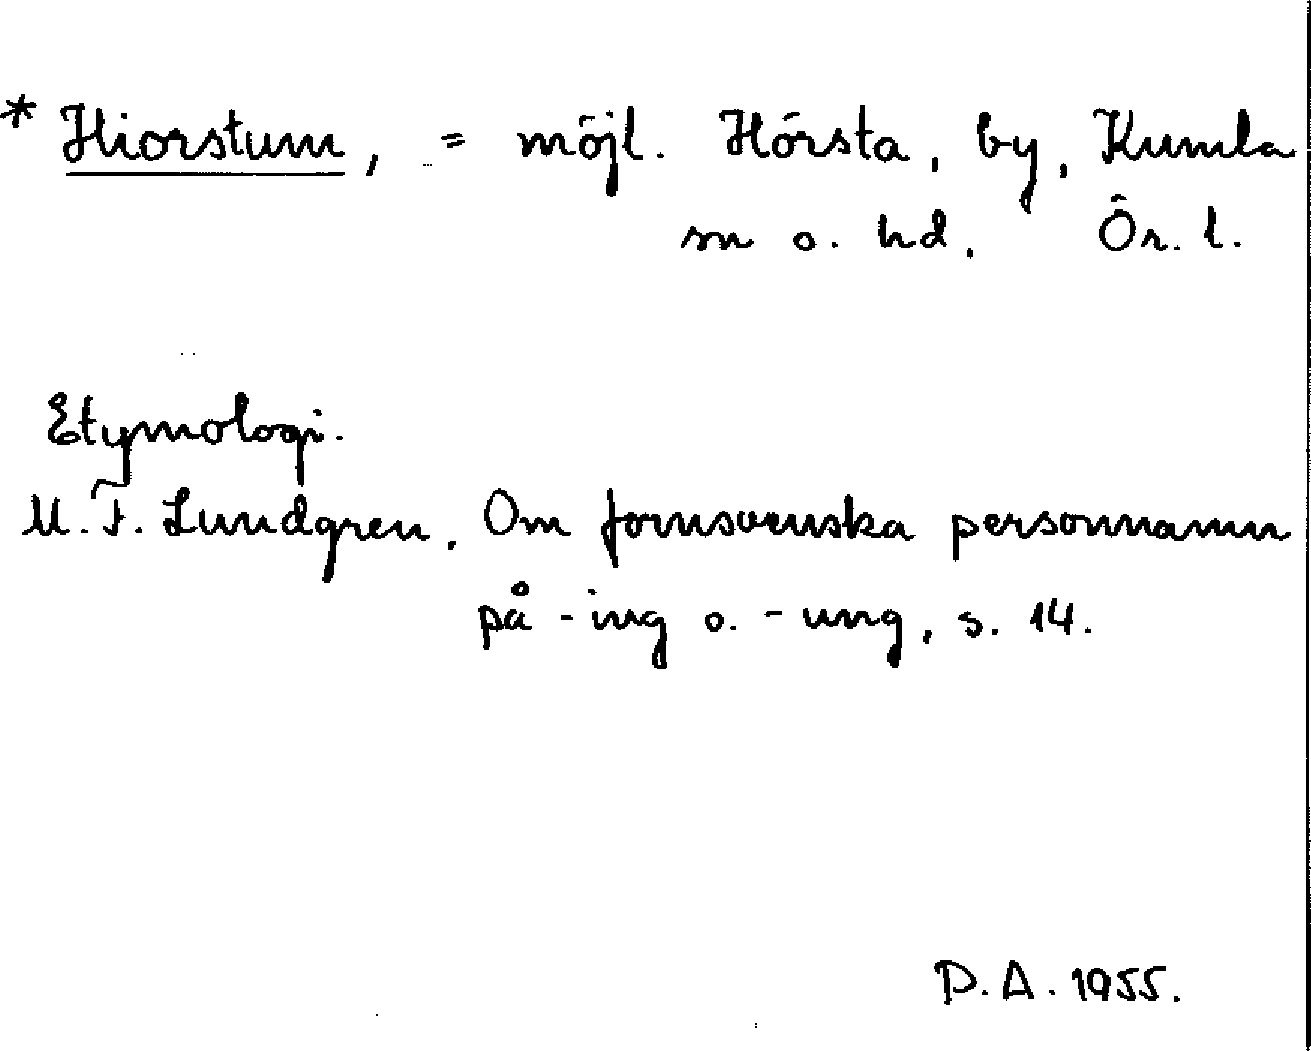 * Hiorstum, = möjl. Hörsta, by, Kumla
sn o. hd, Ör. l.
Etymologi.
M. F. Lundgren, Om fornsvenska personnamn
på -ing o. -ung, s. 14.
D. A. 1955.